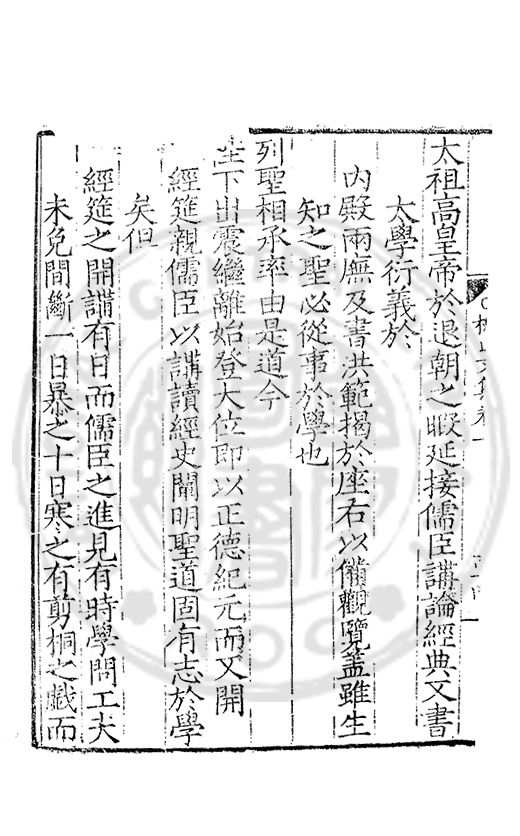 太祖高皇帝於退朝之暇延接儒臣講論經典又書
大學衍義於
內殿兩廡及書洪範揭於座右以備觀覽蓋雖生
知之聖必從事於學也
列聖相承率由是道今
陛下出震繼離始登大位即以正德紀元而又開
經筵親儒臣以講讀經史闡明聖道固有志於學
矣但
經筵之開講有日而儒臣之進見有時學問工夫
未免間斷一日暴之十日寒之有剪桐之戲而